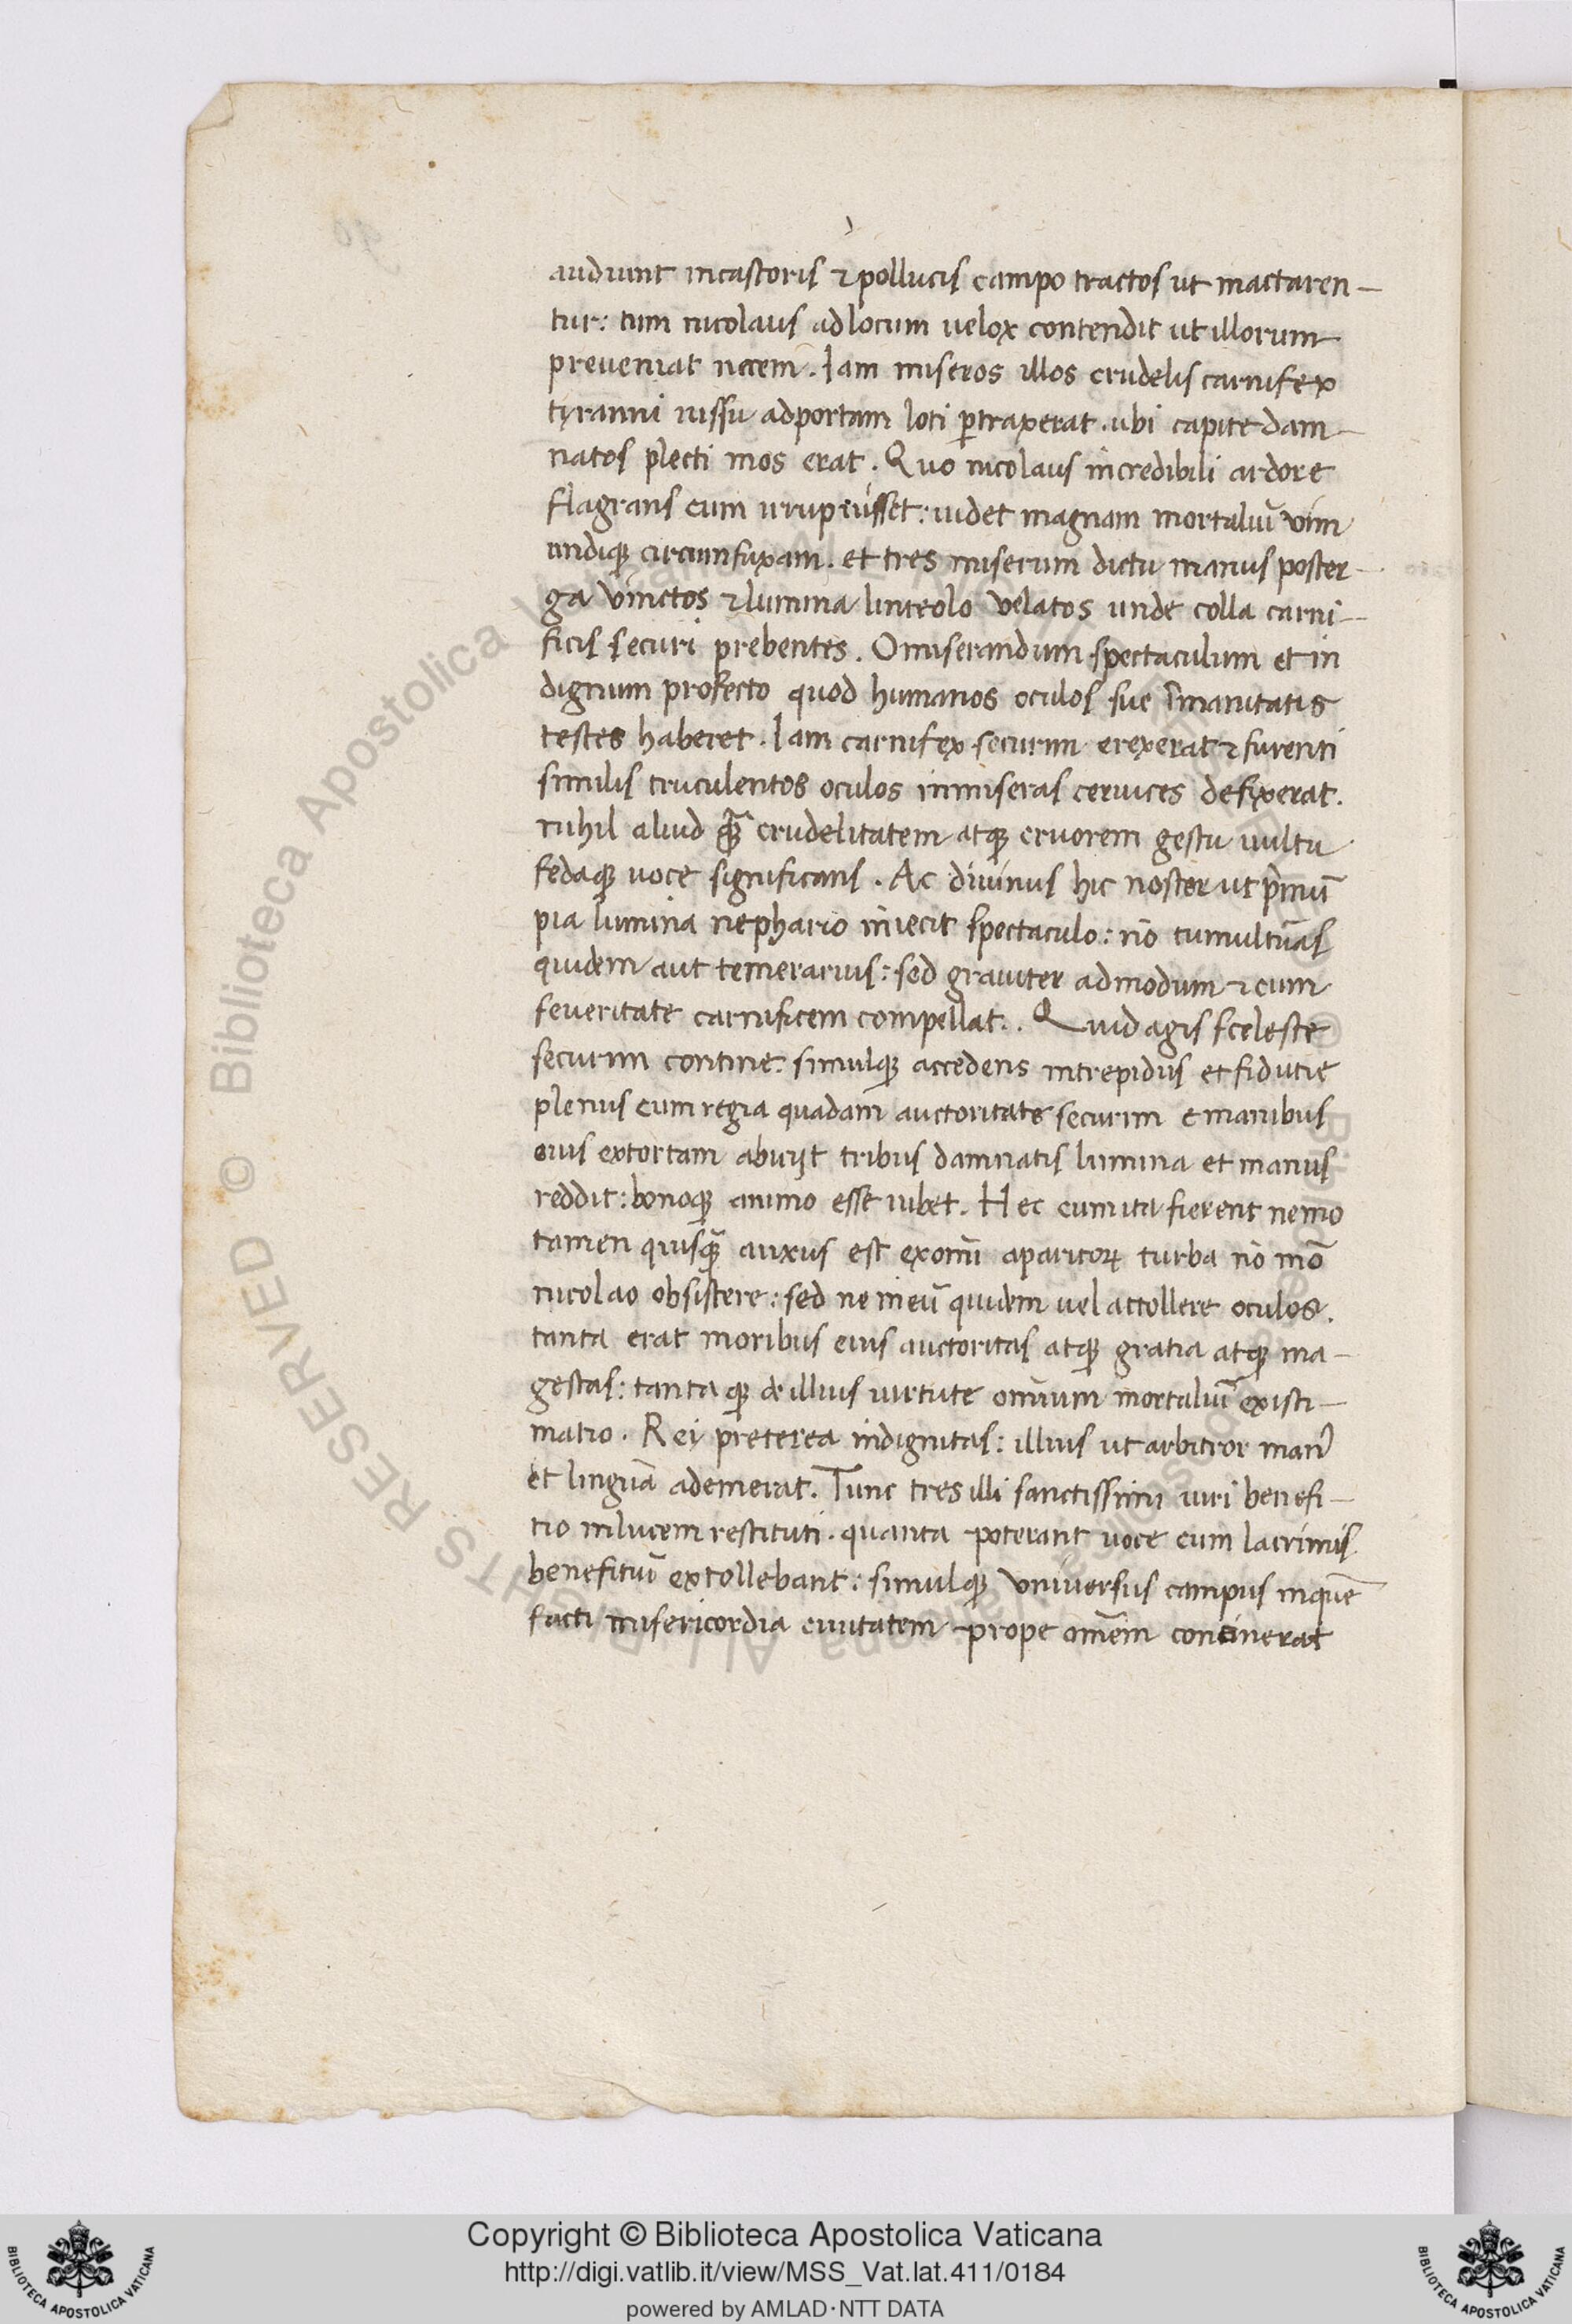 audiunt incastoris ⁊ pollucis campo tractos ut mactaren-
tur: tum nicolaus adlocum uelox contendit ut illorum
preueniat necem. Iam miseros illos crudelis carnifex
tyranni iussu adportam loti ꝑtraxerat. ubi capite dam-
natos plecti mos erat. Quo nicolaus incredibili ardore
flagrans cum irrupiusset: uidet magnam mortaliū vim
undiqꝫ circumfuxam. et tres miserum dictu manus poster-
ga vinctos ⁊ lumina linteolo velatos unde colla carni-
ficis securi prebentes. O miserandum spectaculum et in
dignum profecto quod humanos oculos sue īmanitatis
testes haberet. Iam carnifex securim erexerat ⁊ furenti
similis truculentos oculos inmiseras ceruices defixerat.
nihil aliud qꝫ̄ crudelitatem atqꝫ cruorem gestu uultu
fedaqꝫ uoce significans. Ac diuinus hic noster ut p̄mū
pia lumina nephario iniecit spectaculo: nō tumultūas
quidem aut temerarius: sed grauiter admodum ⁊ cum
seueritate carnificem compellat.. Quid agis sceleste
securim contine: simulqꝫ accedens intrepidus et fidutie
plenus cum regia quadam auctoritate securim e manibus
eius extortam abiijt tribus damnatis lumina et manus
reddit: bonoqꝫ animo esse iubet. Hec cum ita fierent nemo
tamen quisqꝫ̄ auxus est exomī aparitoꝝ turba nō mō
nicolao obsistere: sed ne ineū quidem uel attollere oculos.
tanta erat moribus eius auctoritas atqꝫ gratia atqꝫ ma-
gestas: tantaqꝫ de illius uirtute omnium mortaliū existi-
matio. Rei preterea indignitas: illius ut arbitror
et linguā ademerat. Tunc tres illi sanctissimi uiri benefi-
tio inlucem restituti. quanta poterant uoce cum lacrimis
benefitiū extollebant: simulqꝫ vniuersus campus inquē
facti misericordia ciuitatem prope omēm concinerat
Copyright © Biblioteca Apostolica Vaticana
http://digi.vatlib.it/view/MSS_Vat.lat.411/0184
powered by AMLAD·NTT DATA